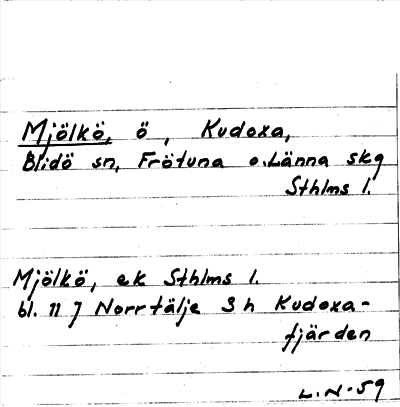 Mjölkö, ö, Kudoxa,
Blidö sn, Frötuna o. Länna skg
Sthlms l.
Mjölkö, ek Sthlms l.
bl. 11 J Norrtälje 3 h Kudoxa-
fjärden
L.N. 59